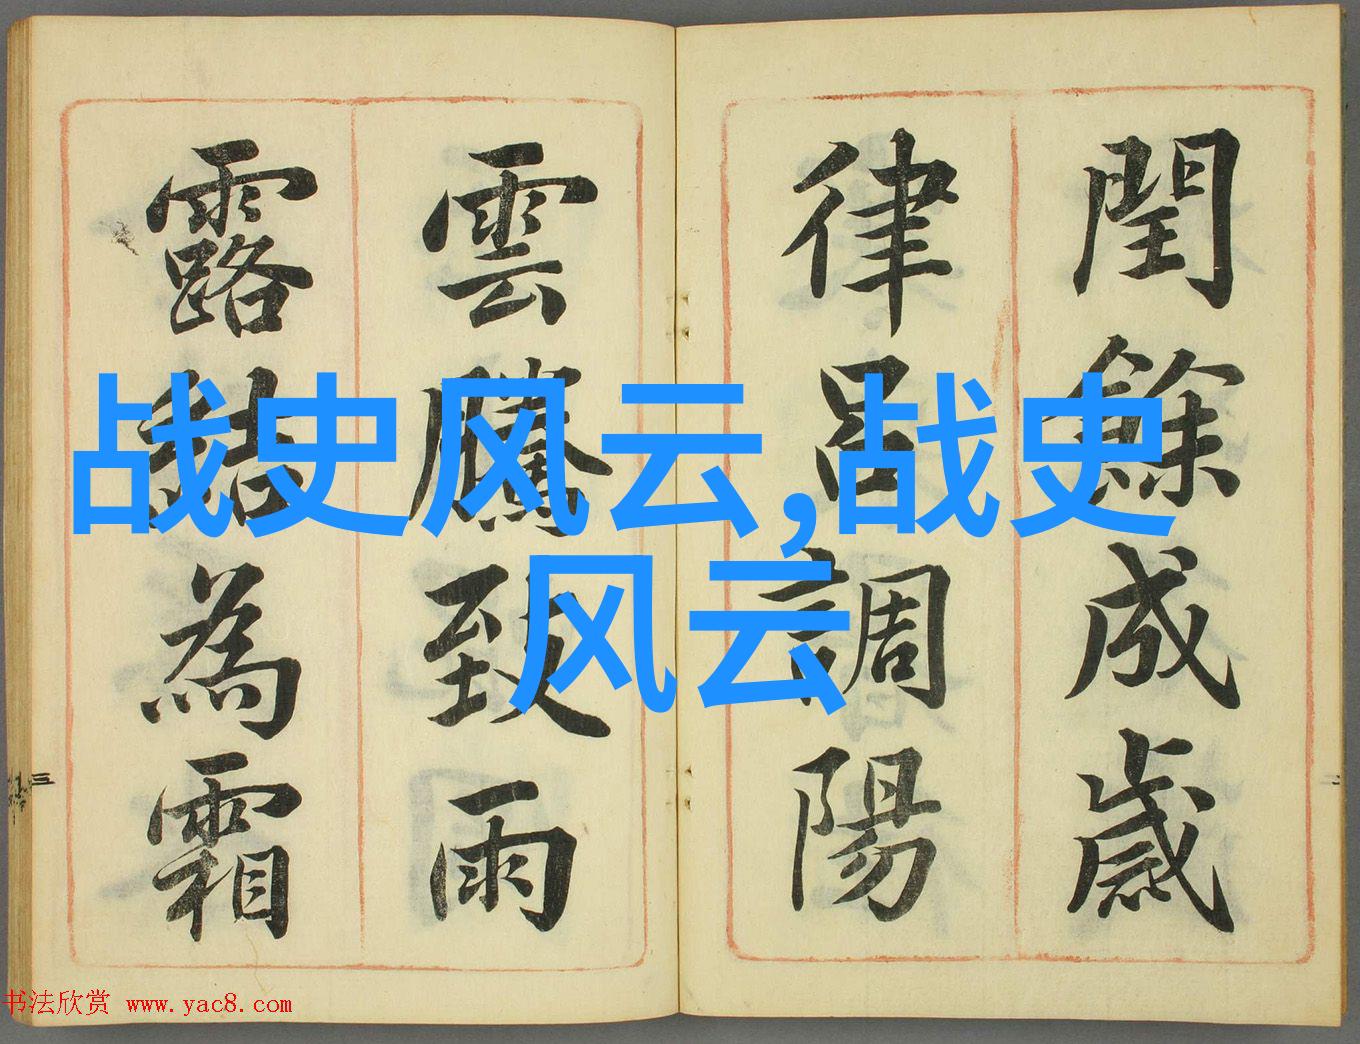 閏餘成歲
律呂調陽
雲騰致雨
露結為霜
战史风云,战史
风云
三
二
书法欣赏 www.yac8.com